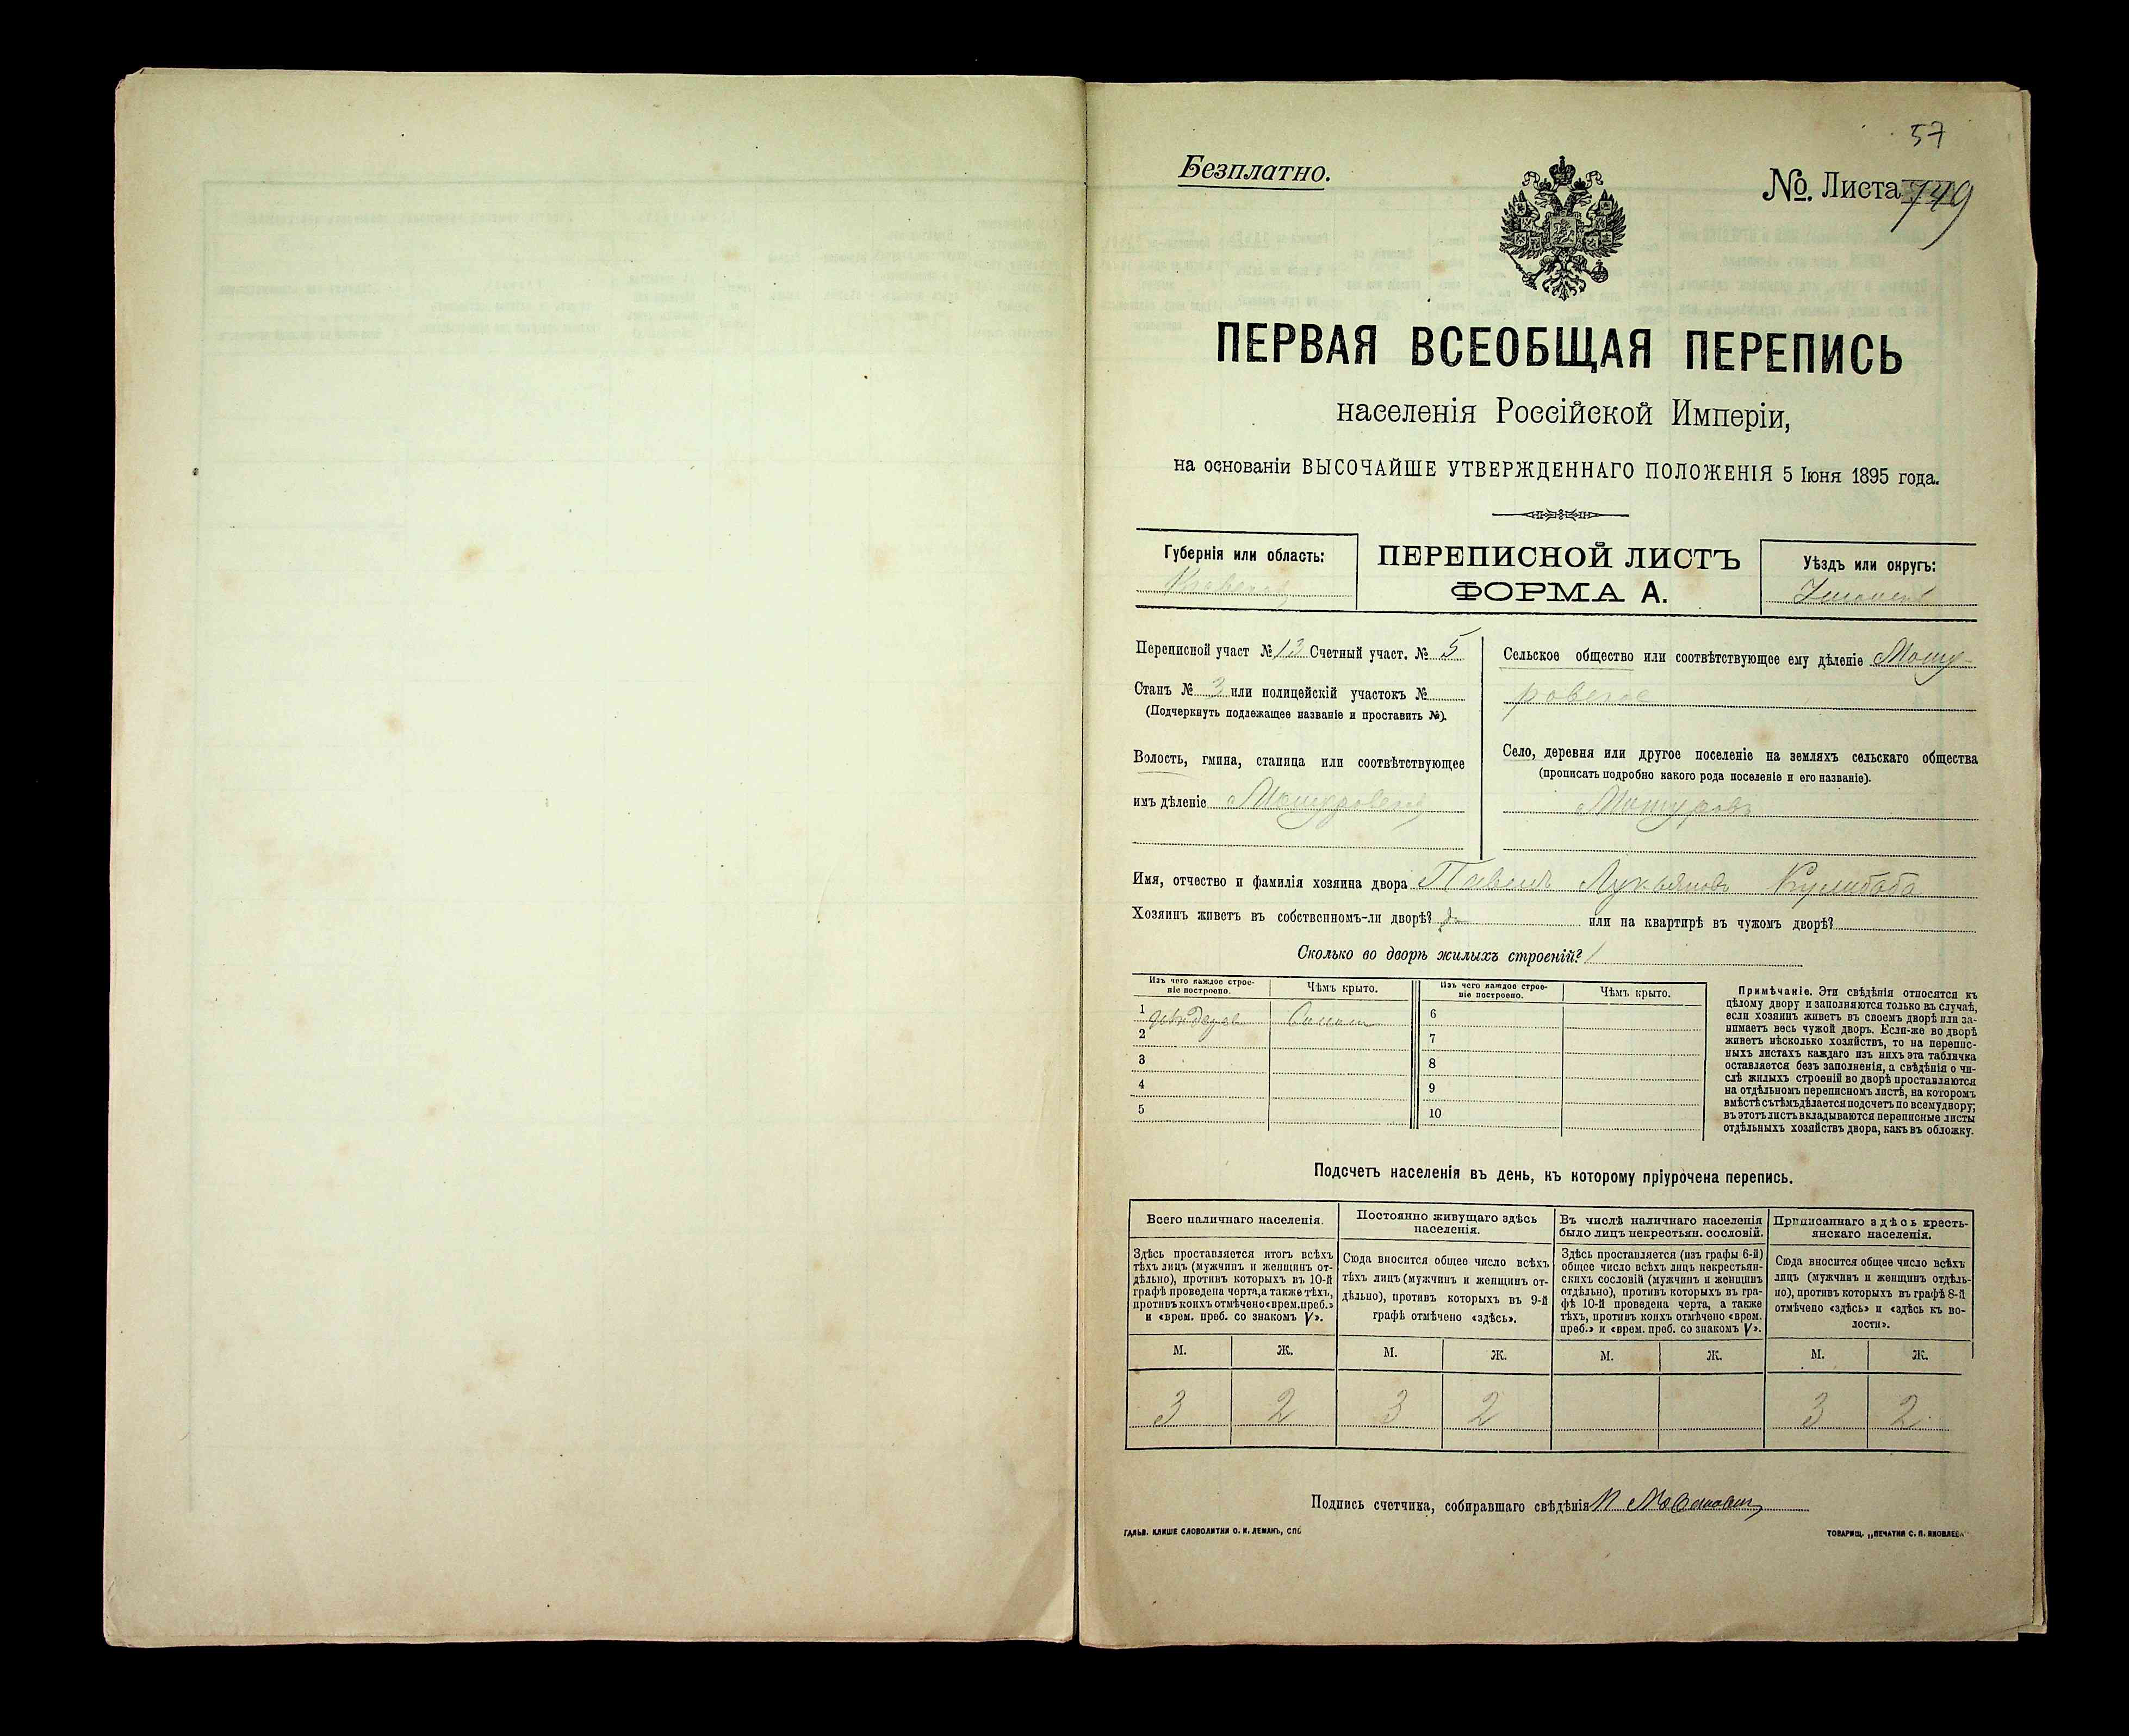 57
Безплатно.
№. Листа 749
ПЕРВАЯ ВСЕОБЩАЯ ПЕРЕПИСЬ
населенія Россійской Имперіи,
на основаніи ВЫСОЧАЙШЕ УТВЕРЖДЕННАГО ПОЛОЖЕНІЯ 5 Іюня 1895 года.
Губернія или область:
Кіевская
ПЕРЕПИСНОЙ ЛИСТЪ
ФОРМА А.
Уѣздъ или округъ:
Переписной участ № 13 Счетный участ. № 5
Станъ № 3 или полицейскій участокъ №
(Подчеркнуть подлежащее названіе и проставить №).
Волость, гмина, станица или соотвѣтствующее
имъ дѣленіе
Сельское общество или соотвѣтствующее ему дѣленіе Машу-
ровское
Село, деревня или другое поселеніе на земляхъ сельскаго общества
(прописать подробно какого рода поселеніе и его названіе).
Машуровъ
Имя, отчество и фамилія хозяина двора Павелъ Лукьяновъ Кулибаба
Хозяинъ живетъ въ собственномъ-ли дворѣ? да или на квартирѣ въ чужомъ дворѣ?
Сколько во дворѣ жилыхъ строеній? 1
Изъ чего каждое строе-
ніе построено.
Чѣмъ крыто.
Изъ чего каждое строе-
ніе построено.
Чѣмъ крыто.
1
2
3
4
5
6
7
8
9
10
Примѣчаніе. Эти свѣдѣнія относятся къ
цѣлому двору и заполняются только въ случаѣ,
если хозяинъ живетъ въ своемъ дворѣ или за-
нимаетъ весь чужой дворъ. Если-же во дворѣ
живетъ нѣсколько хозяйствъ, то на перепис-
ныхъ листахъ каждаго изъ нихъ эта табличка
оставляется безъ заполненія, а свѣдѣнія о чи-
слѣ жилыхъ строеній во дворѣ проставляются
на отдѣльномъ переписномъ листѣ, на которомъ
вмѣстѣ съ тѣмъ дѣлается подсчетъ по всему двору;
въ этотъ листъ вкладываются переписные листы
отдѣльныхъ хозяйствъ двора, какъ въ обложку.
Подсчетъ населенія въ день, къ которому пріурочена перепись.
Всего наличнаго населенія.
Здѣсь проставляется итогъ всѣхъ
тѣхъ лицъ (мужчинъ и женщинъ от-
дѣльно), противъ которыхъ въ 10-й
графѣ проведена черта, а также тѣхъ,
противъ коихъ отмѣчено «врем. преб.»
и «врем. преб. со знакомъ V».
Постоянно живущаго здѣсь
населенія.
Сюда вносится общее число всѣхъ
тѣхъ лицъ (мужчинъ и женщинъ от-
дѣльно), противъ которыхъ въ 9-й
графѣ отмѣчено «здѣсь».
Въ числѣ наличнаго населенія
было лицъ некрестьян. сословій.
Здѣсь проставляется (изъ графы 6-й)
общее число всѣхъ лицъ некрестьян-
скихъ сословій (мужчинъ и женщинъ
отдѣльно), противъ которыхъ въ гра-
фѣ 10-й проведена черта, а также
тѣхъ, противъ коихъ отмѣчено «врем.
преб.» и «врем. преб. со знакомъ V».
Приписаннаго здѣсь кресть-
янскаго населенія.
Сюда вносится общее число всѣхъ
лицъ (мужчинъ и женщинъ отдѣль-
но), противъ которыхъ въ графѣ 8-й
отмѣчено «здѣсь» и «здѣсь къ во-
лости».
М. Ж. М. Ж. М. Ж. М. Ж.
3 2 3 2 3 2
Подпись счетчика, собиравшаго свѣдѣнія
ГАЛЬВ. КЛИШЕ СЛОВОЛИТНИ О. И. ЛЕМАНЪ, СПБ.
ТОВАРИЩ. „ПЕЧАТНЯ С. П. ЯКОВЛЕВА"